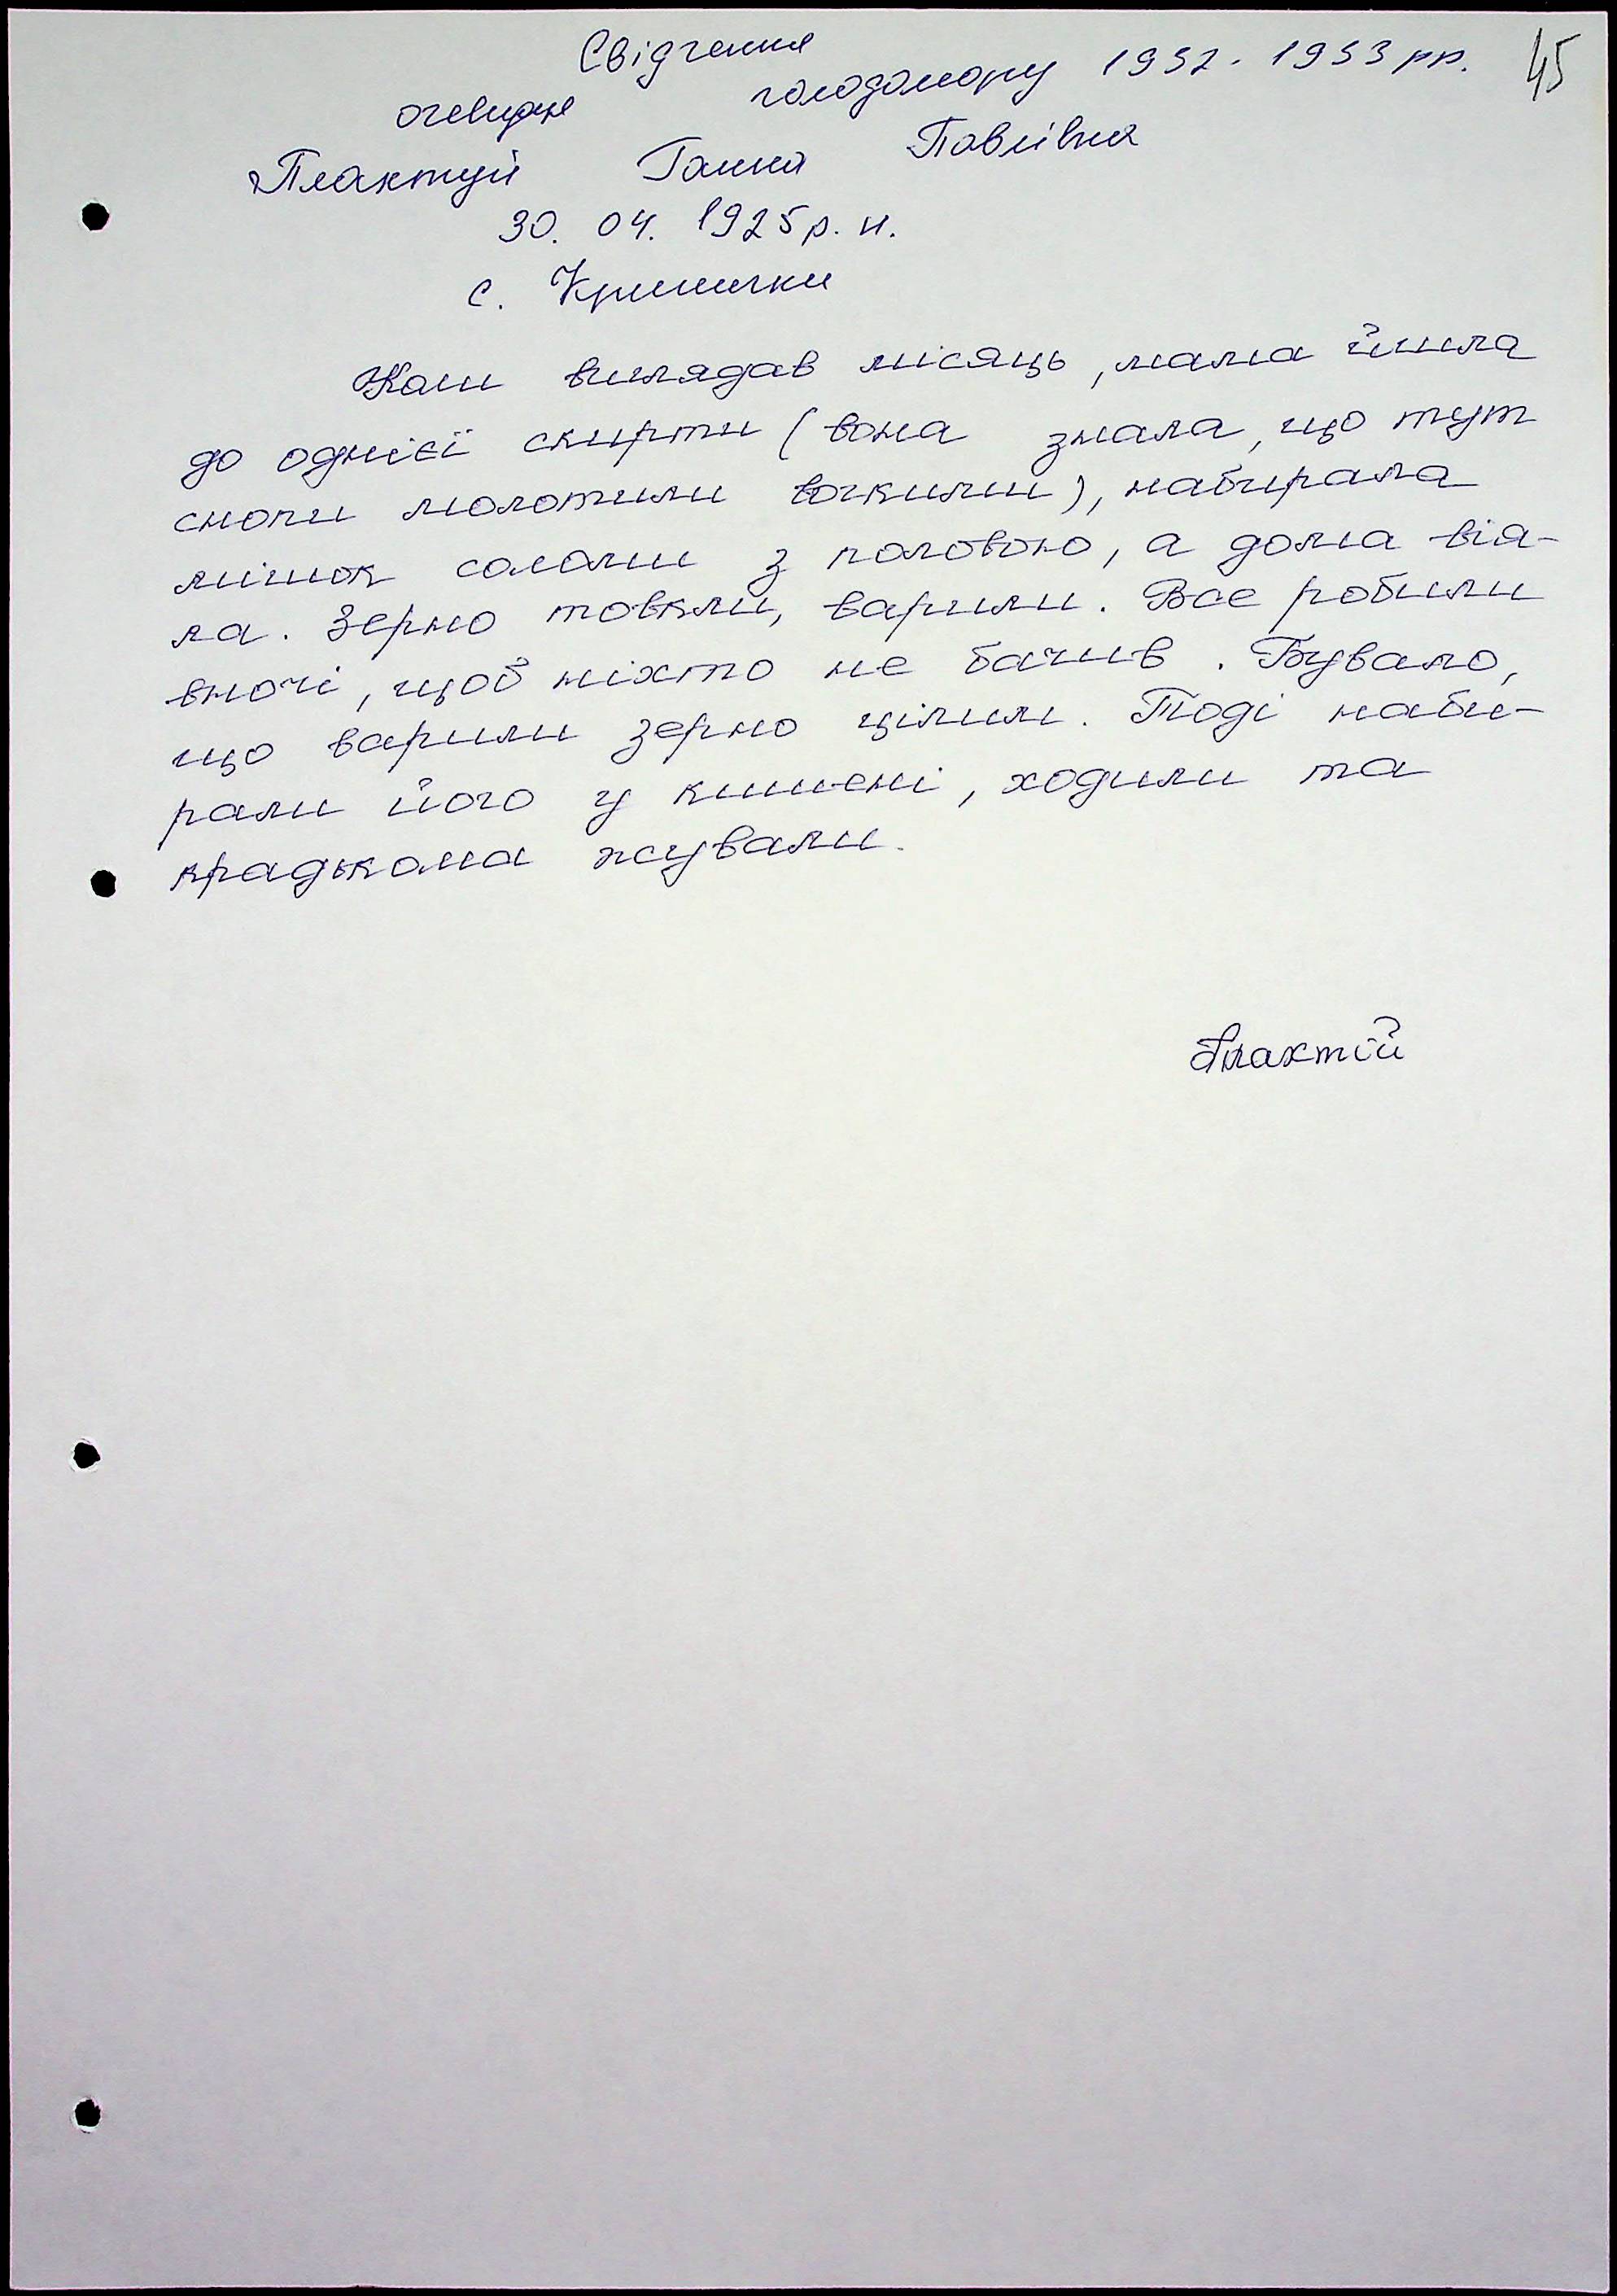 45
Свідчення
очевидця голодомору 1932-1933 рр.
Плактій Ганна Павлівна
30. 04. 1925 р. н.
с. Кринички
Коли виглядав місяць, мама йшла
до однієї скирти (вона знала, що тут
снопи молотили), набирала
мішок соломи з половою, а дома вія-
ла. Зерно товкли, варили. Все робили
вночі, щоб ніхто не бачив. Бувало,
що варили зерно цілим. Тоді наби-
рали його у кишені, ходили та
крадькома жували.